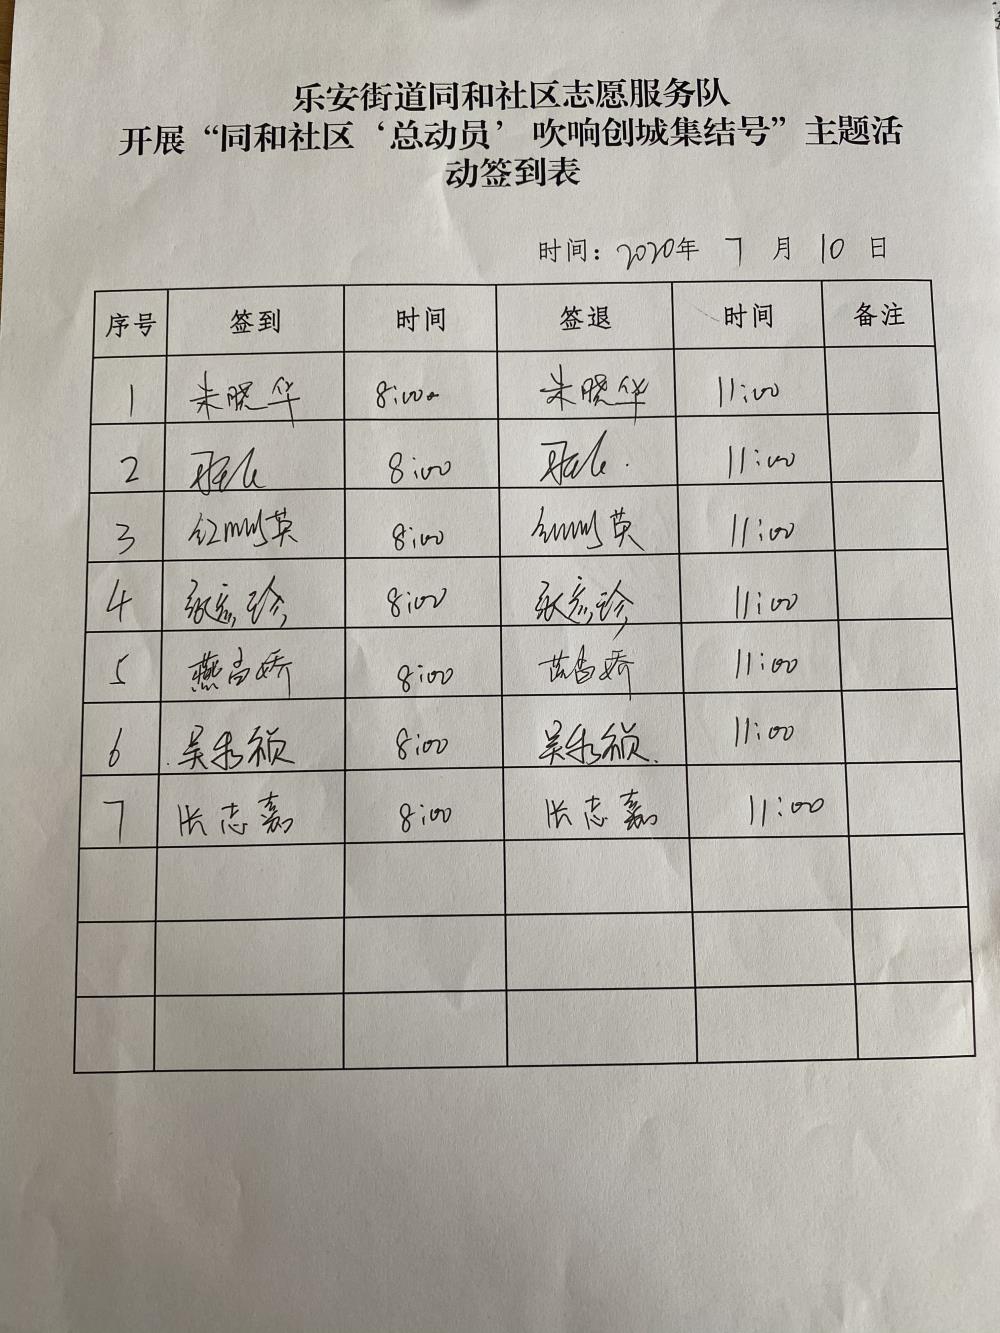 乐安街道同和社区志愿服务队
开展“同和社区‘总动员’ 吹响创城集结号”主题活
动签到表
时间：2020年 7 月 10 日
序号 签到 时间 签退 时间 备注
1 朱晓华 8:00 朱晓华 11:00
2 8:00 11:00
3 英 8:00 英 11:00
4 张彦珍 8:00 张彦珍 11:00
5 燕尚娇 8:00 尚娇 11:00
6 吴秀祯 8:00 吴秀祯 11:00
7 张志嘉 8:00 张志嘉 11:00